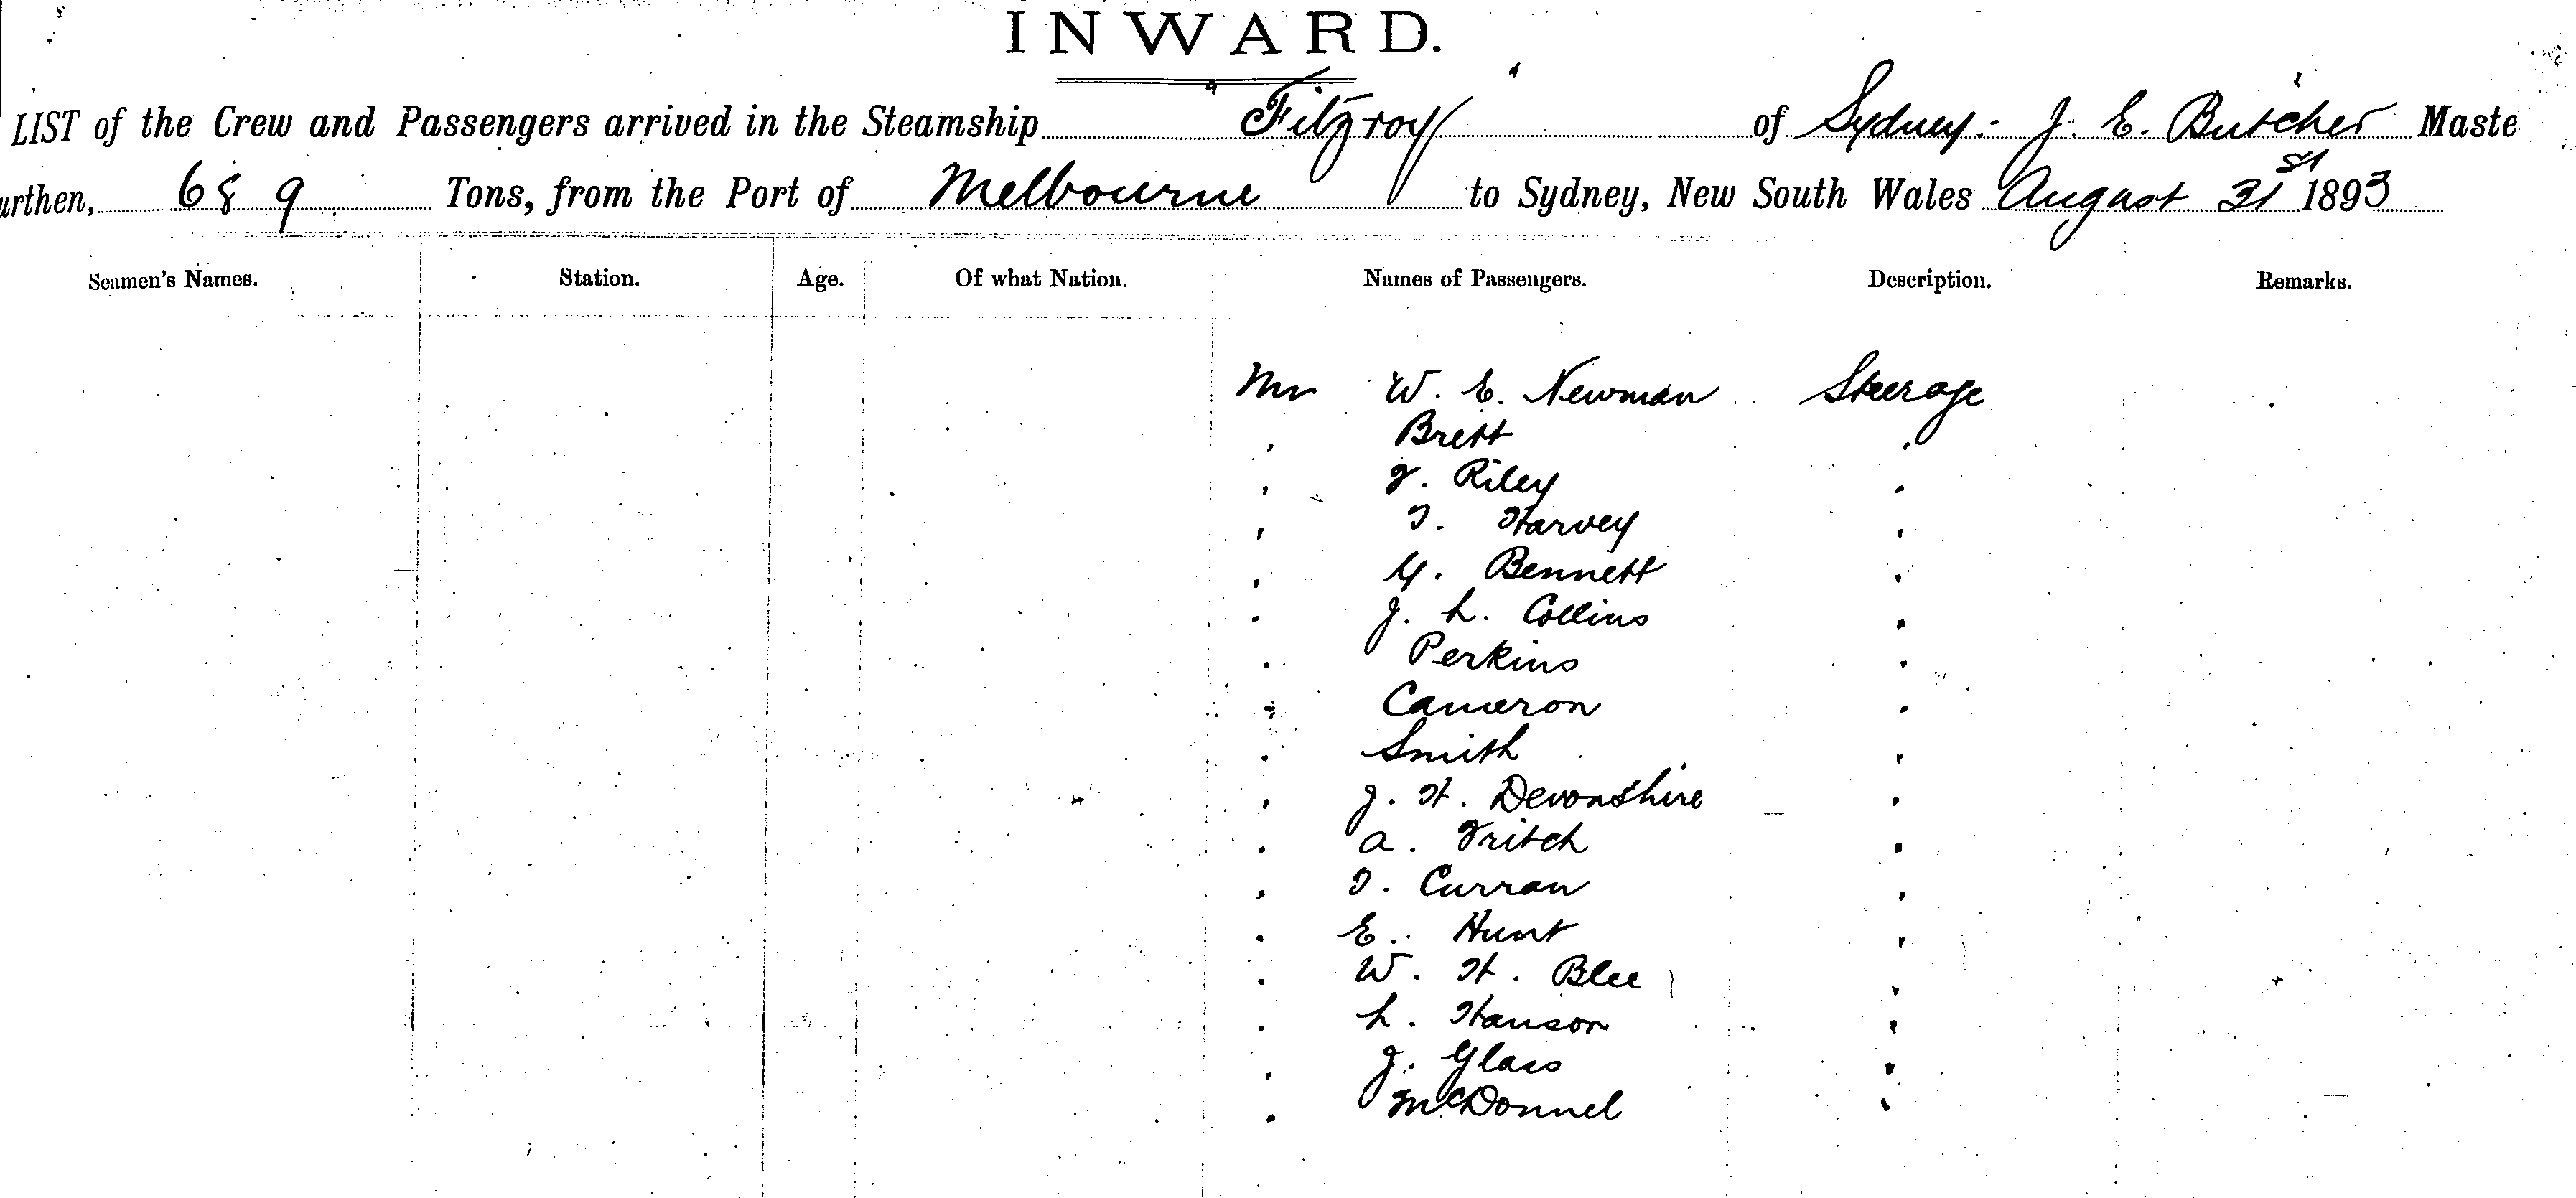 INWARD.
LIST of the Crew and Passengers arrived in the Steamship "Fitzroy" of Sydney - J. E. Butcher Maste
urthen, 689 Tons, from the Port of Melbourne to Sydney, New South Wales August 31st 1893
Seamen's Names. Station. Age. Of what Nation. Names of Passengers. Description. Remarks.
Mr W. E. Newman Steerage
" Brett "
" Riley "
" T. Harvey "
" G. Bennett "
" J. L. Collins "
" Perkins "
" Cameron "
" Smith "
" J. H. Devonshire "
" A. Fritch "
" T. Curran "
" E. Hunt "
" W. H. Blee "
" L. Hanson "
" J. Glass "
" McDonnel "